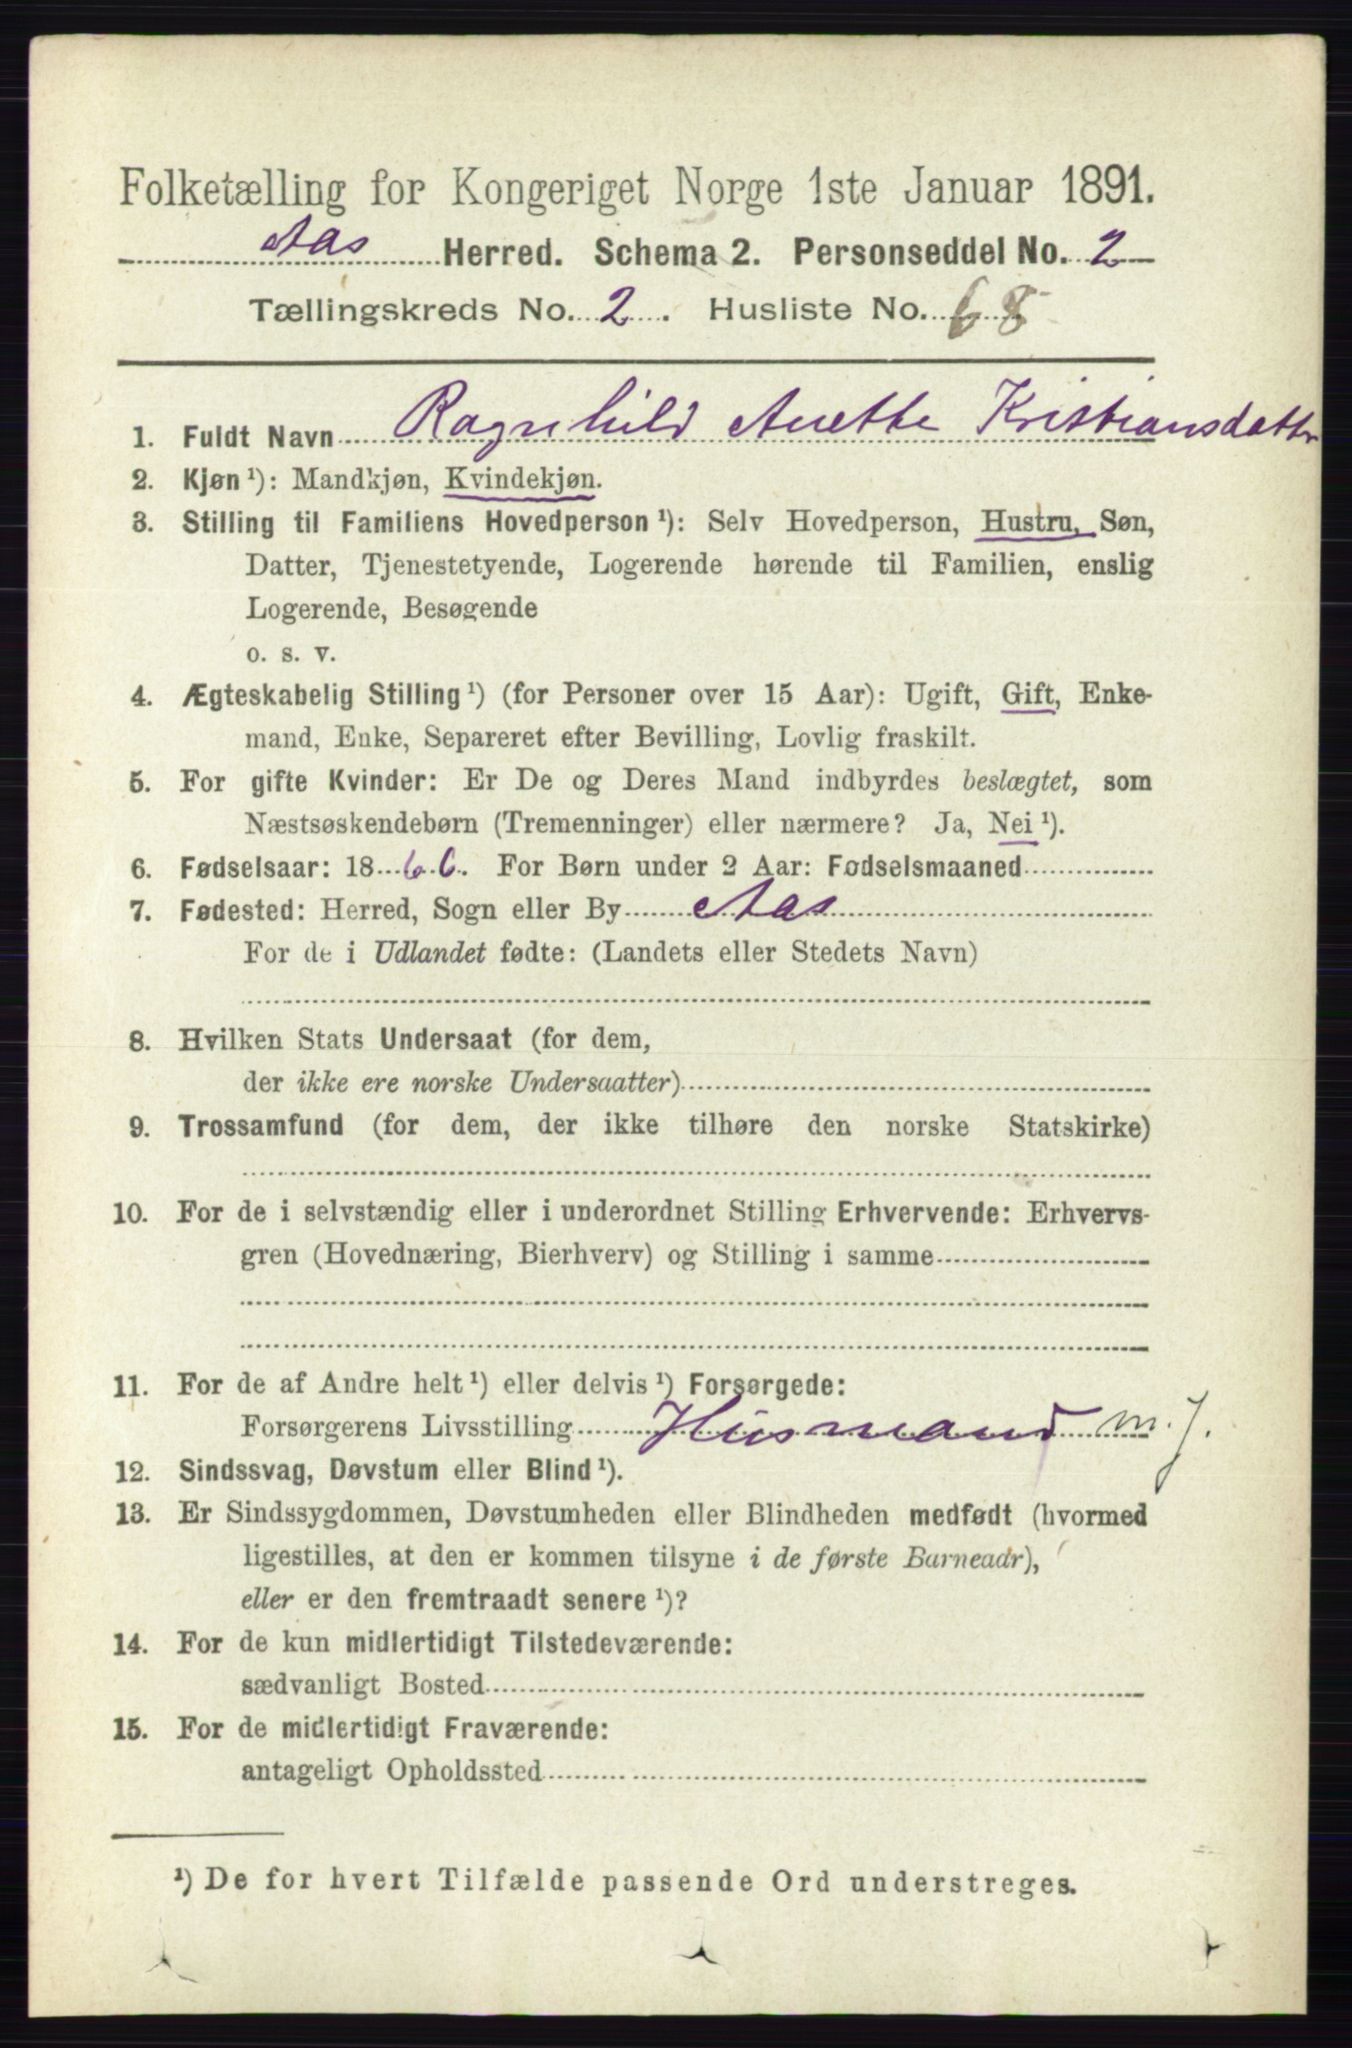 Folketælling for Kongeriget Norge 1ste Januar 1891.
Aas Herred. Schema 2. Personseddel No. 2
Tællingskreds No. 2. Husliste No. 68
1. Fuldt Navn Ragnhild Anette Kristiansdattr
2. Kjøn ¹): Mandkjøn, Kvindekjøn.
3. Stilling til Familiens Hovedperson ¹): Selv Hovedperson, Hustru, Søn,
Datter, Tjenestetyende, Logerende hørende til Familien, enslig
Logerende, Besøgende
o. s. v.
4. Ægteskabelig Stilling ¹) (for Personer over 15 Aar): Ugift, Gift, Enke-
mand, Enke, Separeret efter Bevilling, Lovlig fraskilt.
5. For gifte Kvinder: Er De og Deres Mand indbyrdes beslægtet, som
Næstsøskendebørn (Tremenninger) eller nærmere? Ja, Nei ¹).
6. Fødselsaar: 1866. For Børn under 2 Aar: Fødselsmaaned
7. Fødested: Herred, Sogn eller By Aas
For de i Udlandet fødte: (Landets eller Stedets Navn)
8. Hvilken Stats Undersaat (for dem,
der ikke ere norske Undersaatter)
9. Trossamfund (for dem, der ikke tilhøre den norske Statskirke)
10. For de i selvstændig eller i underordnet Stilling Erhvervende: Erhvervs-
gren (Hovednæring, Bierhverv) og Stilling i samme
11. For de af Andre helt ¹) eller delvis ¹) Forsørgede:
Forsørgerens Livsstilling Husmand m. J.
12. Sindssvag, Døvstum eller Blind ¹).
13. Er Sindssygdommen, Døvstumheden eller Blindheden medfødt (hvormed
ligestilles, at den er kommen tilsyne i de første Barneaar),
eller er den fremtraadt senere ¹)?
14. For de kun midlertidigt Tilstedeværende:
sædvanligt Bosted
15. For de midlertidigt Fraværende:
antageligt Opholdssted
¹) De for hvert Tilfælde passende Ord understreges.